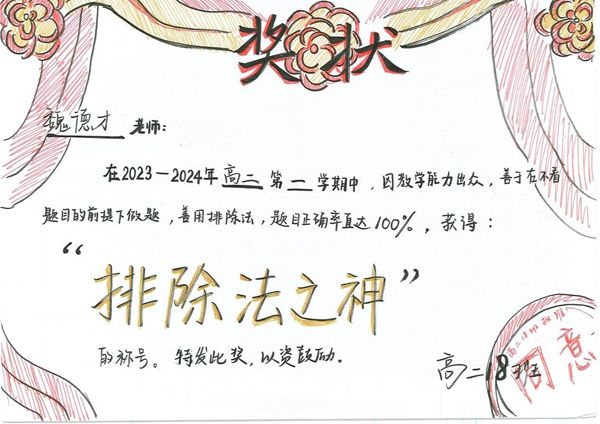 奖状
魏德才 老师:
在2023-2024年高二第一学期中，因数学能力出众，善于在不看
题目的前提下做题，善用排除法，题目正确率直达100%，获得：
“排除法之神”
的称号。特发此奖，以资鼓励。
高二18班
同意